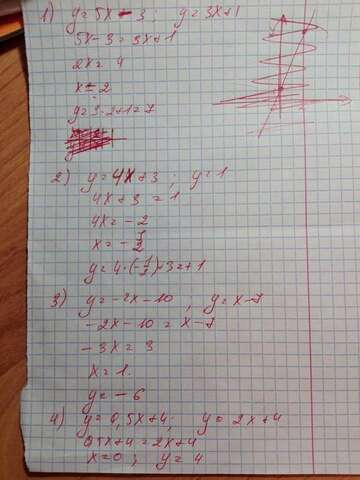 1) y=5x-3; y=3x+1
5x-3=3x+1
2x=4
x=2
y=3·2+1=7
2) y=4x+3; y=1
4x+3=1
4x=-2
x=-1/2
y=4·(-1/2)+3=+1
3) y=-2x-10, y=x-7
-2x-10=x-7
-3x=3
x=1.
y=-6
4) y=0,5x+4; y=2x+4
0,5x+4=2x+4
x=0; y=4